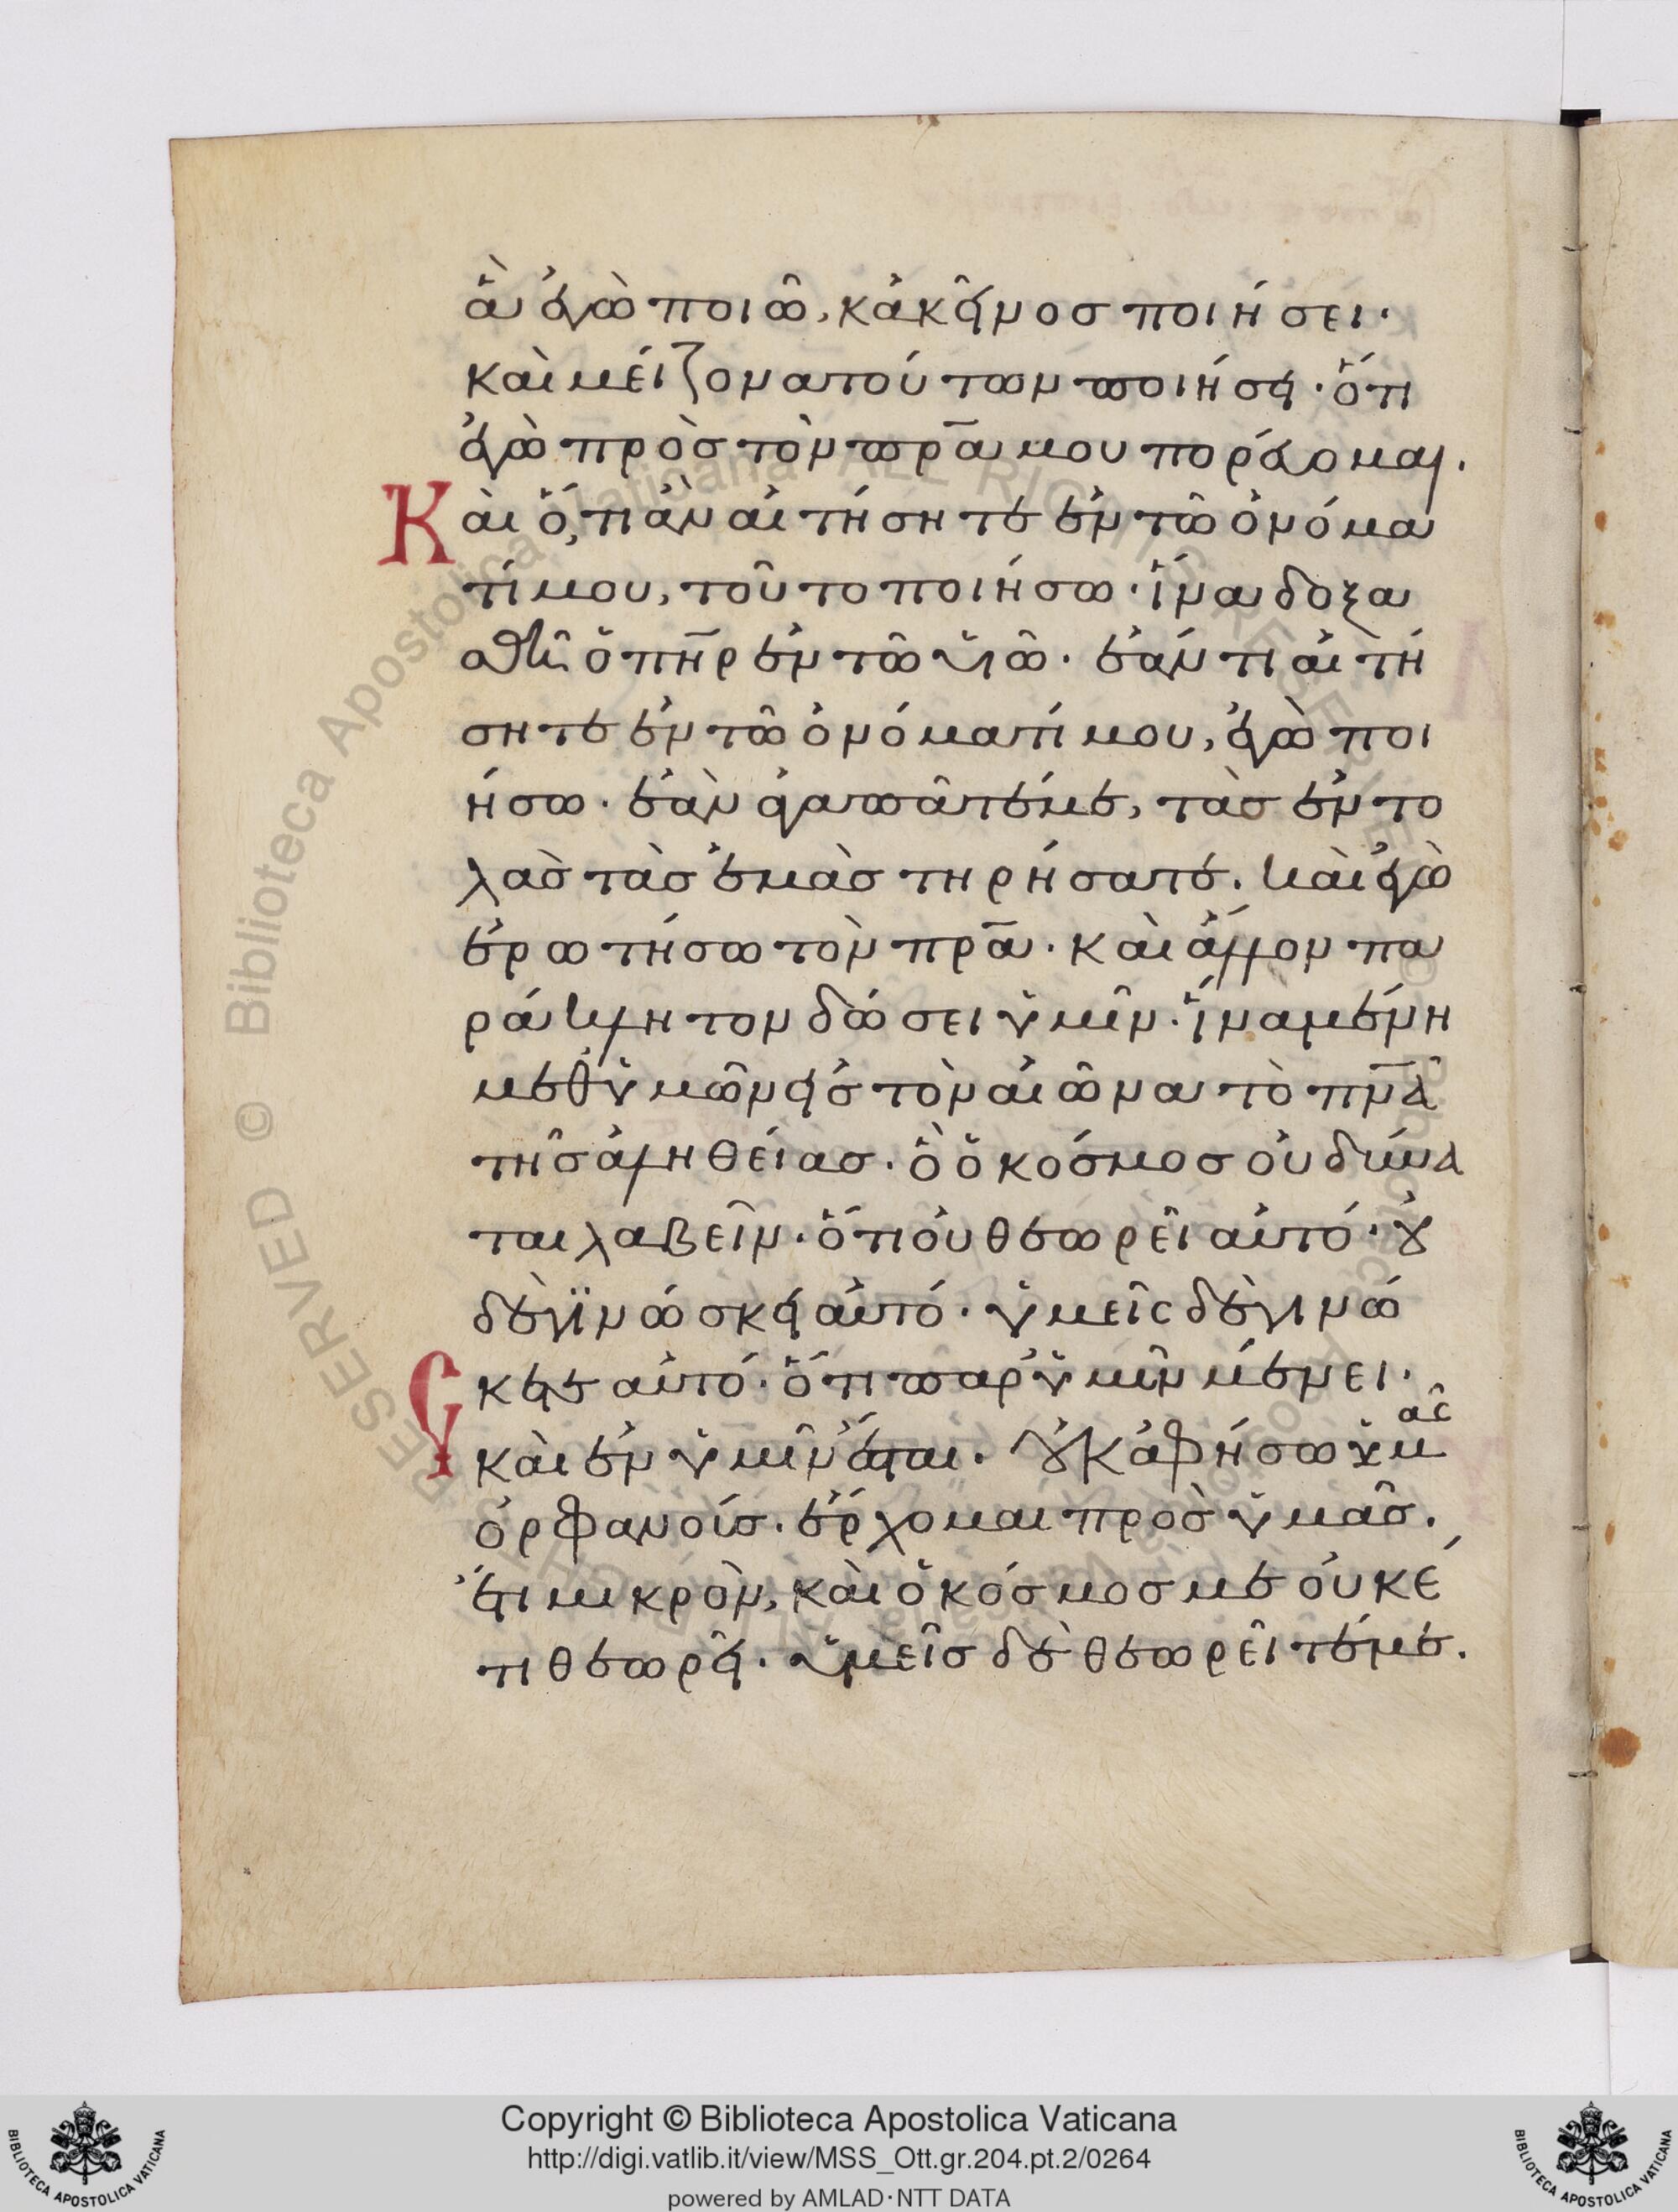 ἃ ἐγὼ ποιῶ, κἀκεῖνος ποιήσει·
καὶ μείζονα τούτων ποιήσει· ὅτι
ἐγὼ πρὸς τὸν πρ̅α μου πορεύομαι.
Καὶ ὅ,τι ἂν αἰτήσητε ἐν τῶ ὀνόμα
τί μου, τοῦτο ποιήσω· ἵνα δοξα
σθῆ ὁ πη̅ρ ἐν τῶ υἱῶ· ἐάν τι αἰτή
σητε ἐν τῶ ὀνόματί μου, ἐγὼ ποι
ήσω· ἐὰν ἀγαπᾶτέ με, τὰς ἐντο
λὰς τὰς ἐμὰς τηρήσατε. καὶ ἐγὼ
ἐρωτήσω τὸν πρ̅α· καὶ ἄλλον πα
ράκλητον δώσει ὑμῖν· ἵνα μένη
μεθ ὑμῶν εἰς τὸν αἰῶνα τὸ πν̅α
τῆς ἀληθείας· ὃ ὁ κόσμος οὐ δύνα
ται λαβεῖν· ὅτι οὐ θεωρεῖ αὐτό· οὐ
δὲ γϊνώσκει αὐτό· ὑμεῖς δὲ γινώ
σκετε αὐτό· ὅτι παρ ὑμῖν μένει·
καὶ ἐν ὑμῖν ἔσται. Οὐκ ἀφήσω ὑμᾶς
ὀρφανούς· ἔρχομαι πρὸς ὑμᾶς.
ἔτι μικρὸν, καὶ ὁ κόσμος με οὐκέ
τι θεωρεῖ· ὑμεῖς δὲ θεωρεῖτέ με.
Copyright © Biblioteca Apostolica Vaticana
http://digi.vatlib.it/view/MSS_Ott.gr.204.pt.2/0264
powered by AMLAD·NTT DATA
BIBLIOTECA APOSTOLICA VATICANA
BIBLIOTECA APOSTOLICA VATICANA